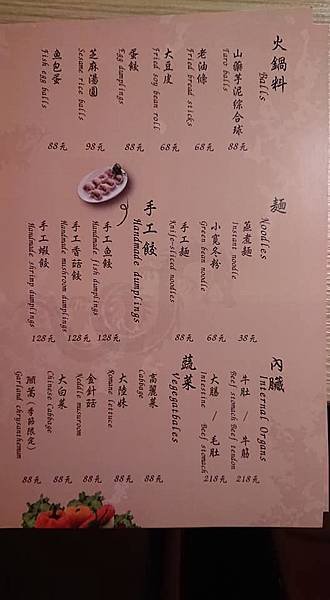 火鍋料
Balls
山藥芋泥綜合球
Taro balls
88元
老油條
Fried bread sticks
68元
大豆皮
Fried soy bean roll
68元
蛋餃
Egg dumplings
88元
芝麻湯圓
Sesame rice balls
98元
魚包蛋
Fish egg balls
88元
麵
Noodles
蒸煮麵
Instant noodle
38元
小寬冬粉
Green bean noodle
68元
手工麵
Knife-sliced noodles
88元
手工餃
Handmade dumplings
手工魚餃
Handmade fish dumplings
128元
手工香菇餃
Handmade mushroom dumplings
128元
手工蝦餃
Handmade shrimp dumplings
128元
內臟
Internal Organs
牛肚 / 牛筋
Beef stomach Beef tendon
218元
大腸 / 毛肚
Intestine / Beef stomach
218元
蔬菜
Vegegatbales
高麗菜
Cabbage
88元
大陸妹
Romane lettuce
88元
金針菇
Noddle musuroom
88元
大白菜
Chinese Cabbage
88元
茼蒿(季節限定)
Garland chrysanthemum
88元